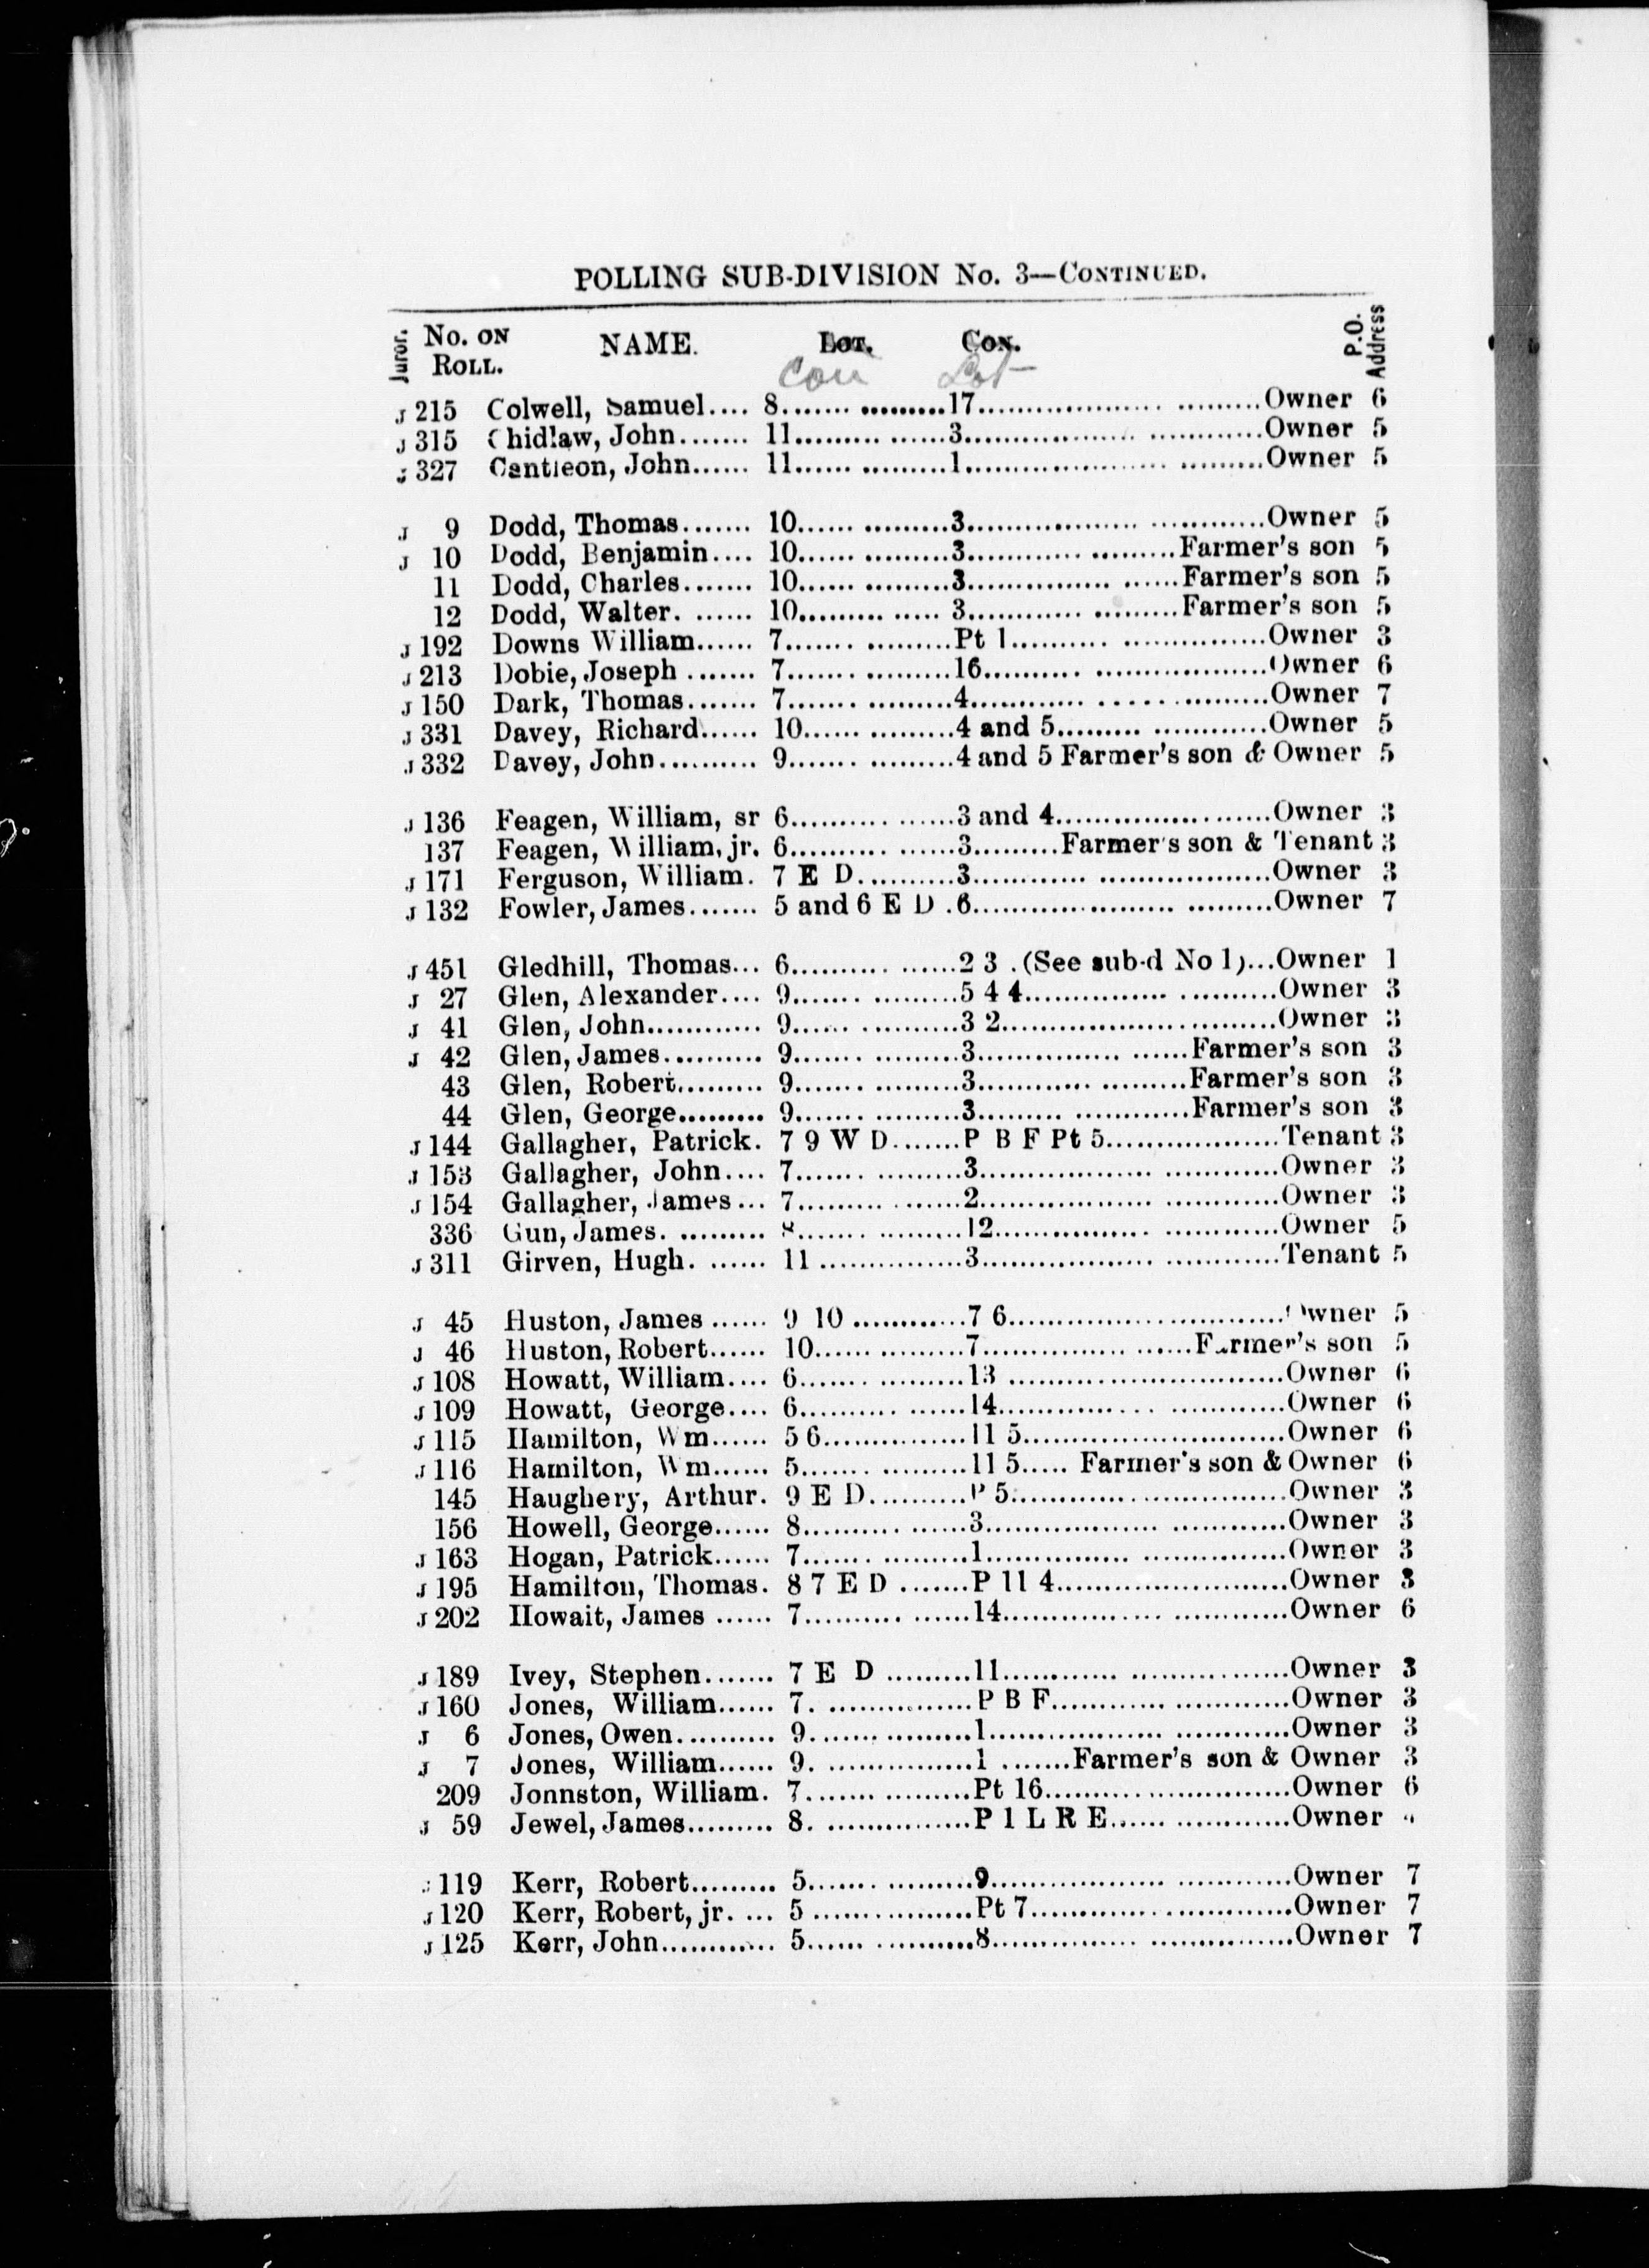 POLLING SUB-DIVISION No. 3—CONTINUED.
Juror. No. ON ROLL. NAME. LOT. CON. P.O. Address
Con Lot
J 215 Colwell, Samuel.... 8.................17.............................Owner 6
J 315 Chidlaw, John....... 11...............3..............................Owner 5
J 327 Cantleon, John...... 11...............1..............................Owner 5
J 9 Dodd, Thomas....... 10...............3..............................Owner 5
J 10 Dodd, Benjamin.... 10...............3.....................Farmer's son 5
11 Dodd, Charles....... 10...............3.....................Farmer's son 5
12 Dodd, Walter. ...... 10............... 3.....................Farmer's son 5
J 192 Downs William...... 7................Pt 1.........................Owner 3
J 213 Dobie, Joseph ....... 7................16............................Owner 6
J 150 Dark, Thomas....... 7................4.............................Owner 7
J 331 Davey, Richard...... 10...............4 and 5......................Owner 5
J 332 Davey, John.......... 9................4 and 5 Farmer's son & Owner 5
J 136 Feagen, William, sr 6................3 and 4......................Owner 3
137 Feagen, William, jr. 6................3.........Farmer's son & Tenant 3
J 171 Ferguson, William. 7 E D..........3..............................Owner 3
J 132 Fowler, James....... 5 and 6 E D .6..............................Owner 7
J 451 Gledhill, Thomas... 6................2 3 .(See sub-d No 1)...Owner 1
J 27 Glen, Alexander.... 9................5 4 4.........................Owner 3
J 41 Glen, John............ 9................3 2...........................Owner 3
J 42 Glen, James.......... 9................3.....................Farmer's son 3
43 Glen, Robert......... 9................3.....................Farmer's son 3
44 Glen, George......... 9................3.....................Farmer's son 3
J 144 Gallagher, Patrick. 7 9 W D.......P B F Pt 5..................Tenant 3
J 153 Gallagher, John.... 7................3..............................Owner 3
J 154 Gallagher, James... 7................2..............................Owner 3
336 Gun, James. ......... 8................12............................Owner 5
J 311 Girven, Hugh. ...... 11 ...............3.............................Tenant 5
J 45 Huston, James ...... 9 10 ............7 6...........................Owner 5
J 46 Huston, Robert...... 10...............7.....................Farmer's son 5
J 108 Howatt, William.... 6................13 ...........................Owner 6
J 109 Howatt, George.... 6................14............................Owner 6
J 115 Hamilton, Wm...... 5 6...............11 5..........................Owner 6
J 116 Hamilton, Wm...... 5................11 5..... Farmer's son & Owner 6
145 Haughery, Arthur. 9 E D..........P 5...........................Owner 3
156 Howell, George...... 8................3..............................Owner 3
J 163 Hogan, Patrick...... 7................1..............................Owner 3
J 195 Hamilton, Thomas. 8 7 E D .......P 11 4........................Owner 3
J 202 Howait, James ...... 7................14............................Owner 6
J 189 Ivey, Stephen....... 7 E D .........11............................Owner 3
J 160 Jones, William...... 7. ...............P B F.........................Owner 3
J 6 Jones, Owen.......... 9................1..............................Owner 3
J 7 Jones, William...... 9. ...............1 .......Farmer's son & Owner 3
209 Jonnston, William. 7................Pt 16........................Owner 6
J 59 Jewel, James......... 8. ...............P 1 L R E..................Owner
J 119 Kerr, Robert......... 5................9..............................Owner 7
J 120 Kerr, Robert, jr. ... 5 ................Pt 7..........................Owner 7
J 125 Kerr, John............ 5................8..............................Owner 7